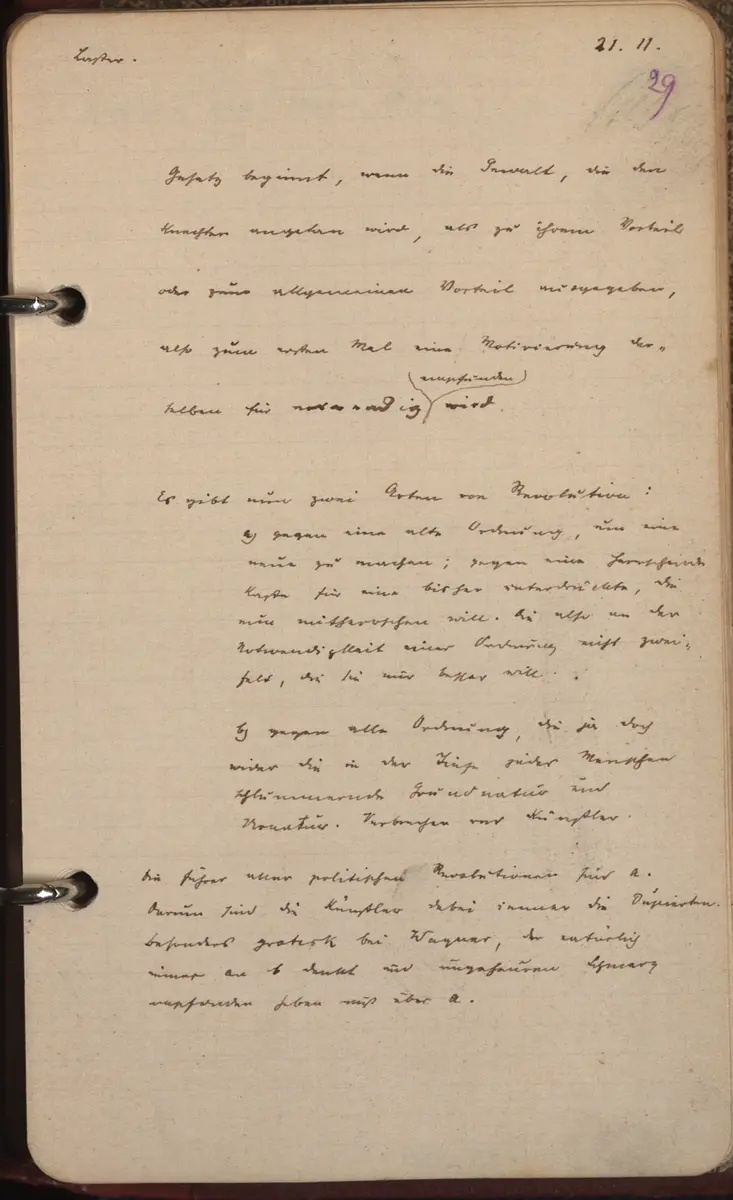 Laster.
21. 11.
29
Gesetz beginnt, wenn die Gewalt, die den
Knechten angetan wird, als zu ihrem Vorteil
oder zum allgemeinen Vorteil ausgegeben,
also zum ersten Mal eine Motivierung der=
selben für notwendig empfunden wird.
Es gibt nun zwei Arten von Revolution:
a) gegen eine alte Ordnung, um eine
neue zu machen; gegen eine herrschende
Kaste für eine bisher unterdrückte, die
nun mitherrschen will. Die also an der
Notwendigkeit einer Ordnung nicht zwei=
felt, die sie nur besser will.
b) gegen alle Ordnung, die ja doch
wider die in der Tiefe jedes Menschen
schlummernde Grundnatur und
Urnatur. Verbrecher und Künstler.
Die Führer aller politischen Revolutionen sind a.
Darum sind die Künstler dabei immer die Düpierten.
Besonders grotesk bei Wagner, der natürlich
immer an b denkt und ungeheuren Schmerz
empfunden haben muß über a.